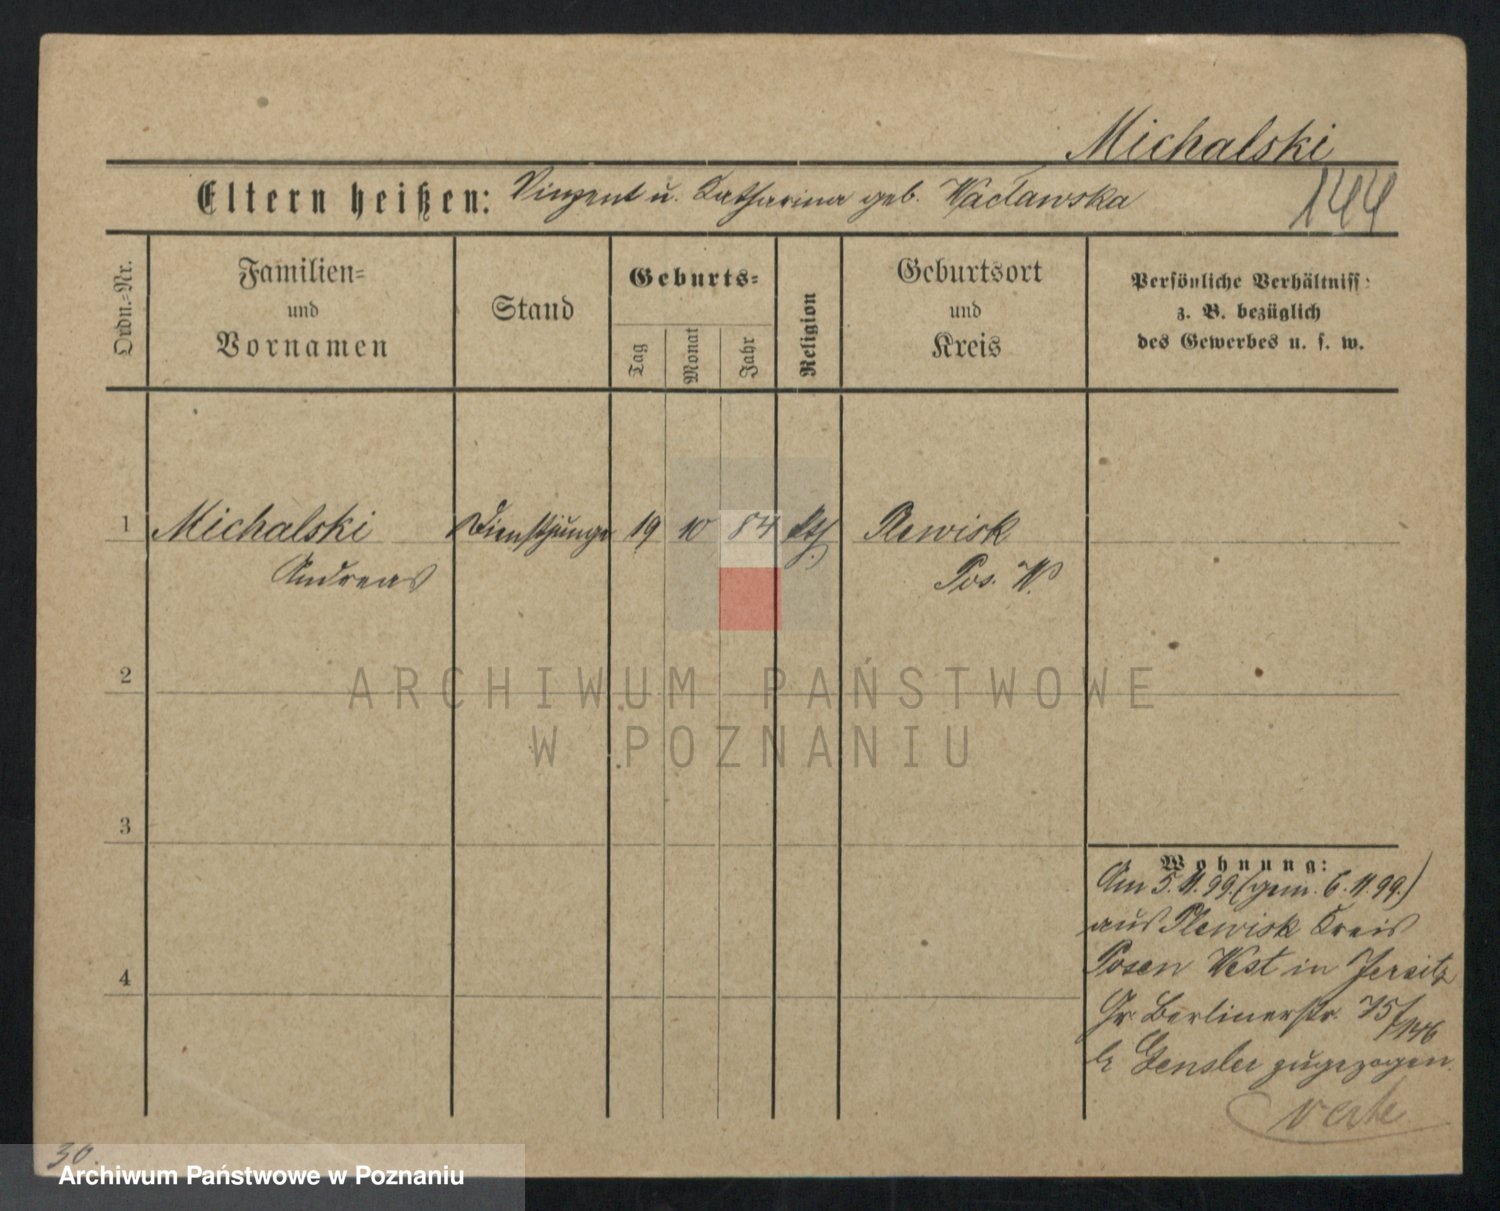 Michalski
Eltern heißen: Vinzent u. Katharina geb. Wacławska
144
Ordn.=Nr.
Familien=
und
Vornamen
Stand
Geburts=
Tag
Monat
Jahr
Religion
Geburtsort
und
Kreis
Persönliche Verhältniss
z. B. bezüglich
des Gewerbes u. s. w.
1 Michalski Dienstjunge 19 10 84 kth Plewisk
Andreas Pos. W.
2
3
4
Wohnung:
Am 5.11.99. (gem. 6.11.99.)
aus Plewisk Kreis
Posen West in Jersitz
Gr. Berlinerstr. 75/
b. Gensler zugezogen.
verte
30.
ARCHIWUM PAŃSTWOWE
W POZNANIU
Archiwum Państwowe w Poznaniu